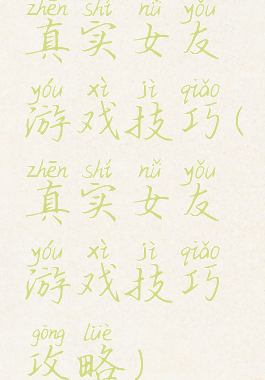 zhēn shí nǚ yǒu
真实女友
yóu xì jì qiǎo
游戏技巧(
zhēn shí nǚ yǒu
真实女友
yóu xì jì qiǎo
游戏技巧
gōng lüè
攻略)